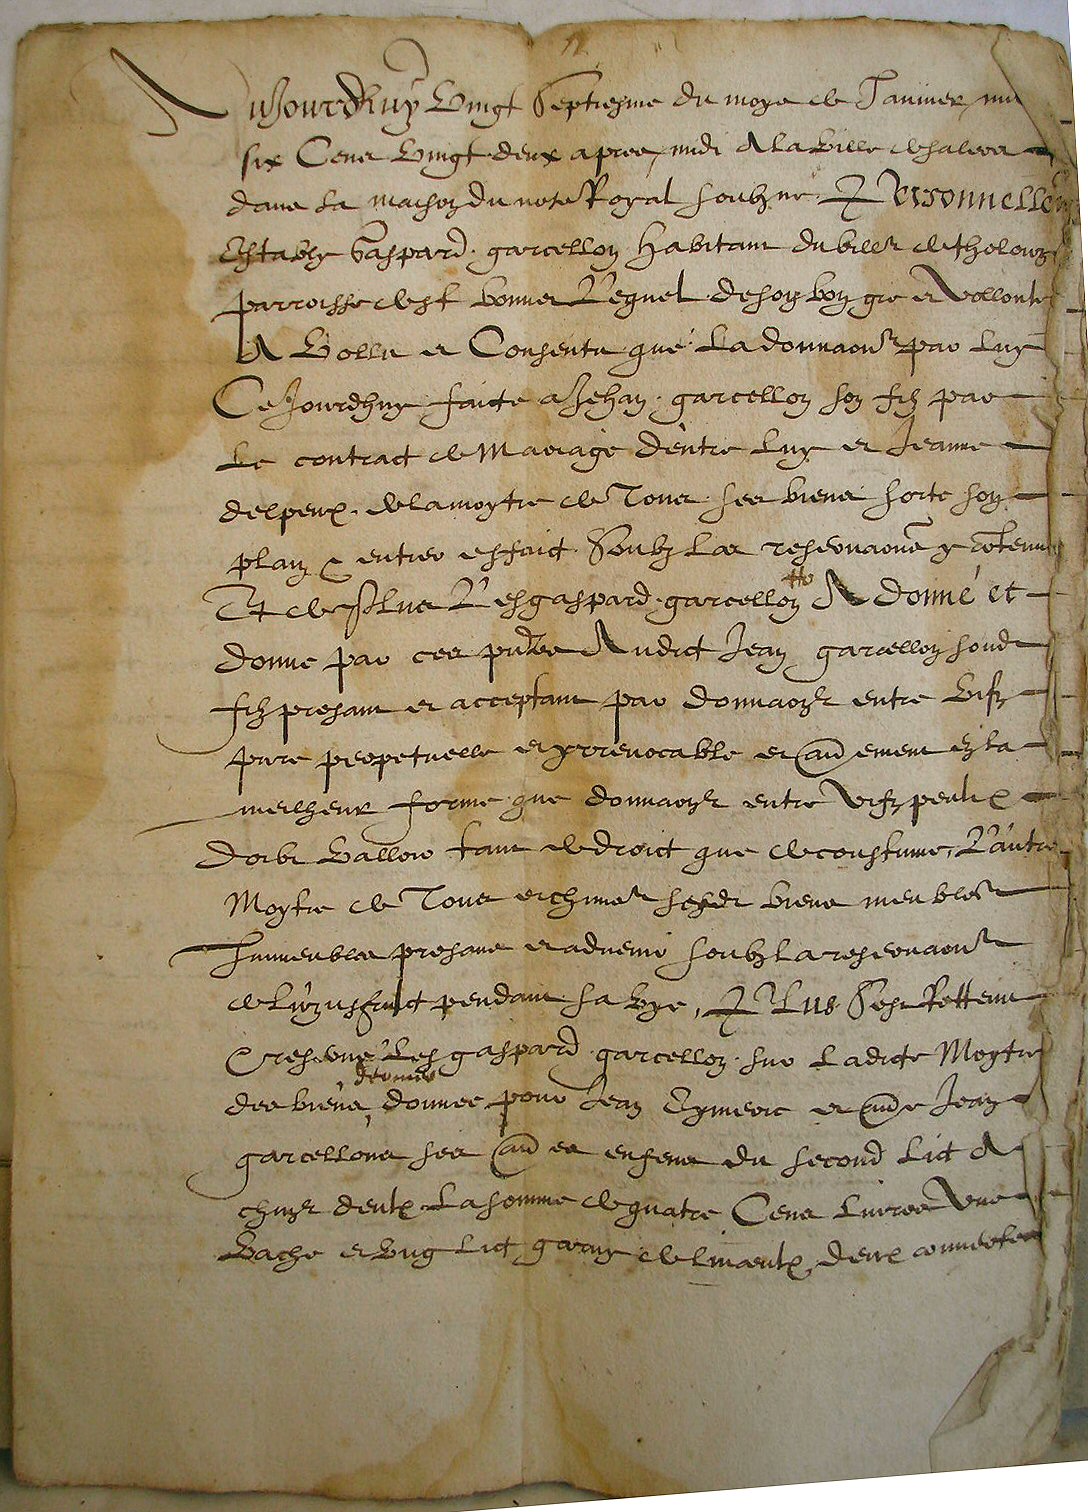 AuJourdhuy Vingt Septiesme du moys de Janvier mil
six Cens Vingt deux apres midi A la Ville de salers
dans la maison du note Royal soubzne Personnellem
Estably Gaspard garcellon Habitant du ville de tholouze
parroisse de st bonnet Lequel de son bon gre et Vollonte
A Vollu et Consentu que La donnaon par Luy
CeJourdhuy faicte a Jehan garcellon son filz par
Le contract de Mariage dentre Luy et Jeanne
delpeux de la moytie de Tous ses biens sorte son
plain & entier effaict Soubz Les reservaons y contenues
Et de plus Led gaspard garcellon A donné et
donne par ces pntes Audict Jean garcellon sond
filz presant et acceptant par donnaon entre Vifz
pure perpetuelle et yrrevocable et aument en la
meilheur forme que donnaon entre vifz peult
doibt Valloir tant de droict que de coustume, L'autre
Moytie de Tous et chuns sesd biens meubles
Immeubles presans et advenir soubz la reservaon
de Luzusfruict pendant sa Vye, Plus Sest Rettenu
& reserve Led gaspard garcellon sur Ladicte Moytie
derniere
des biens donnee pour Jean Eymeric et aue Jean
garcellons ses au es enfens du second Lict A
chun deulx La somme de quatre Cens Livres Une
Vache et Ung Lict garny de linceulx, deux couvertes